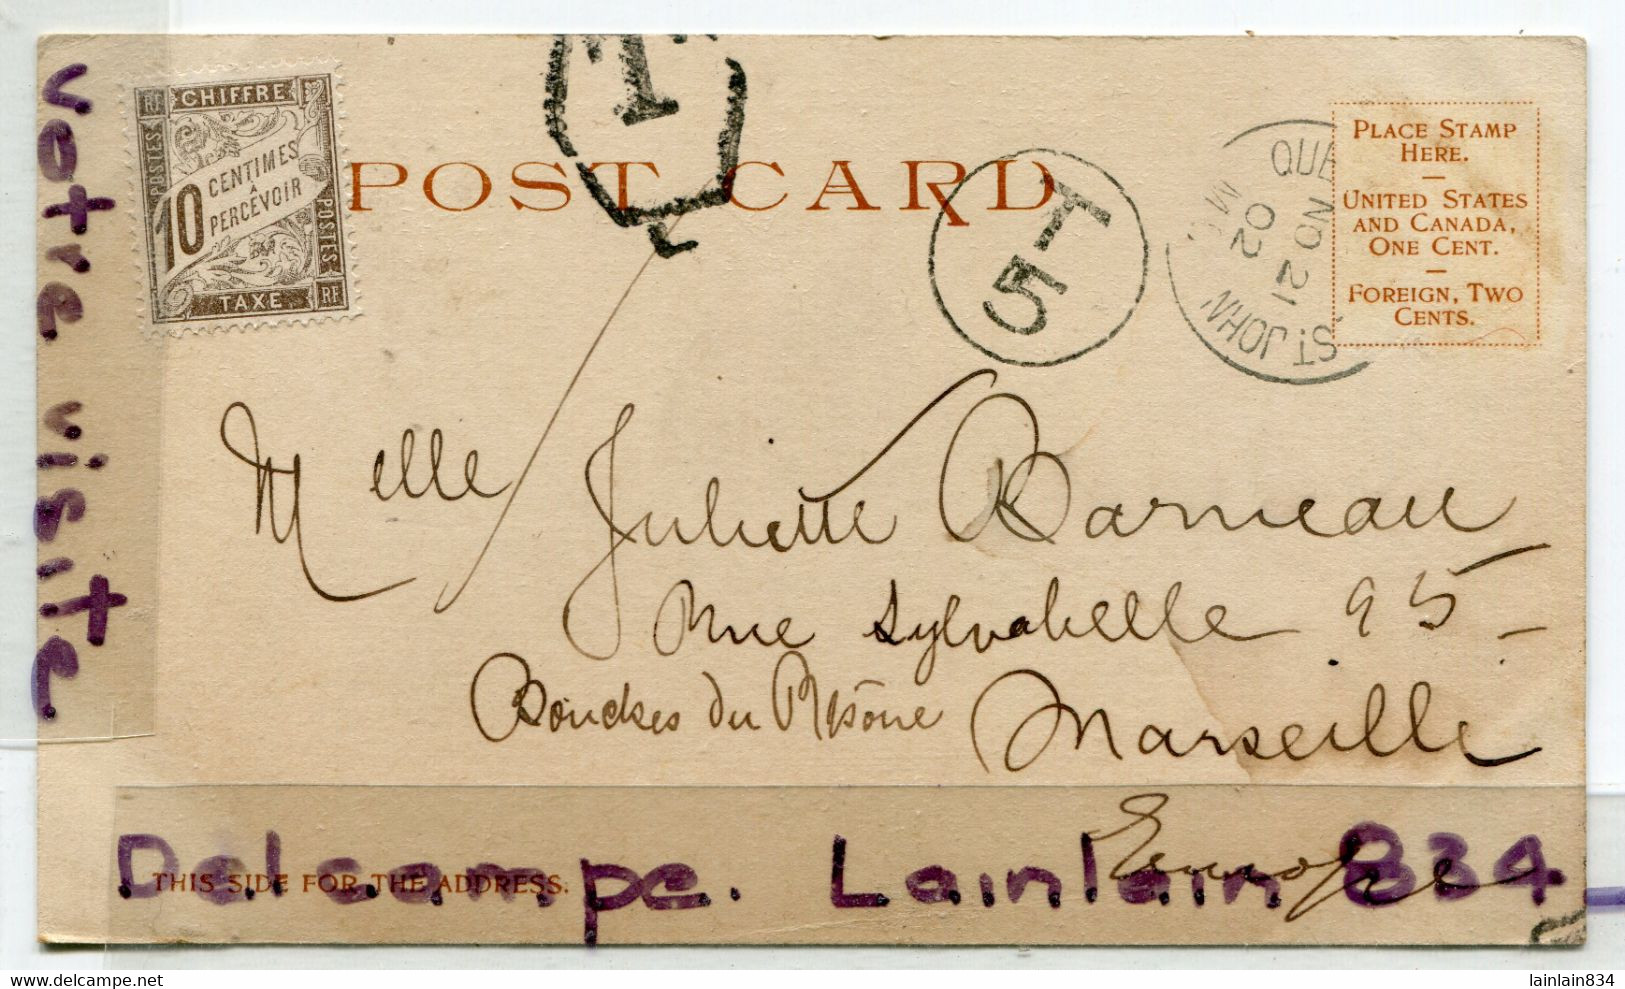 votre visite.
RF CHIFFRE
POSTES
10 CENTIMES
A
PERCEVOIR
POSTES
TAXE RF
T
POST CARD
T
5
QUE
NO 21
02
ST. JOHN
PLACE STAMP
HERE.
UNITED STATES
AND CANADA,
ONE CENT.
FOREIGN, TWO
CENTS.
Melle Juliette Barneau
Rue Sylvabelle 95
Bouches du Rhône Marseille
Europe
THIS SIDE FOR THE ADDRESS.
Delcampe. Lainlain 834
Delcampe.net
lainlain834